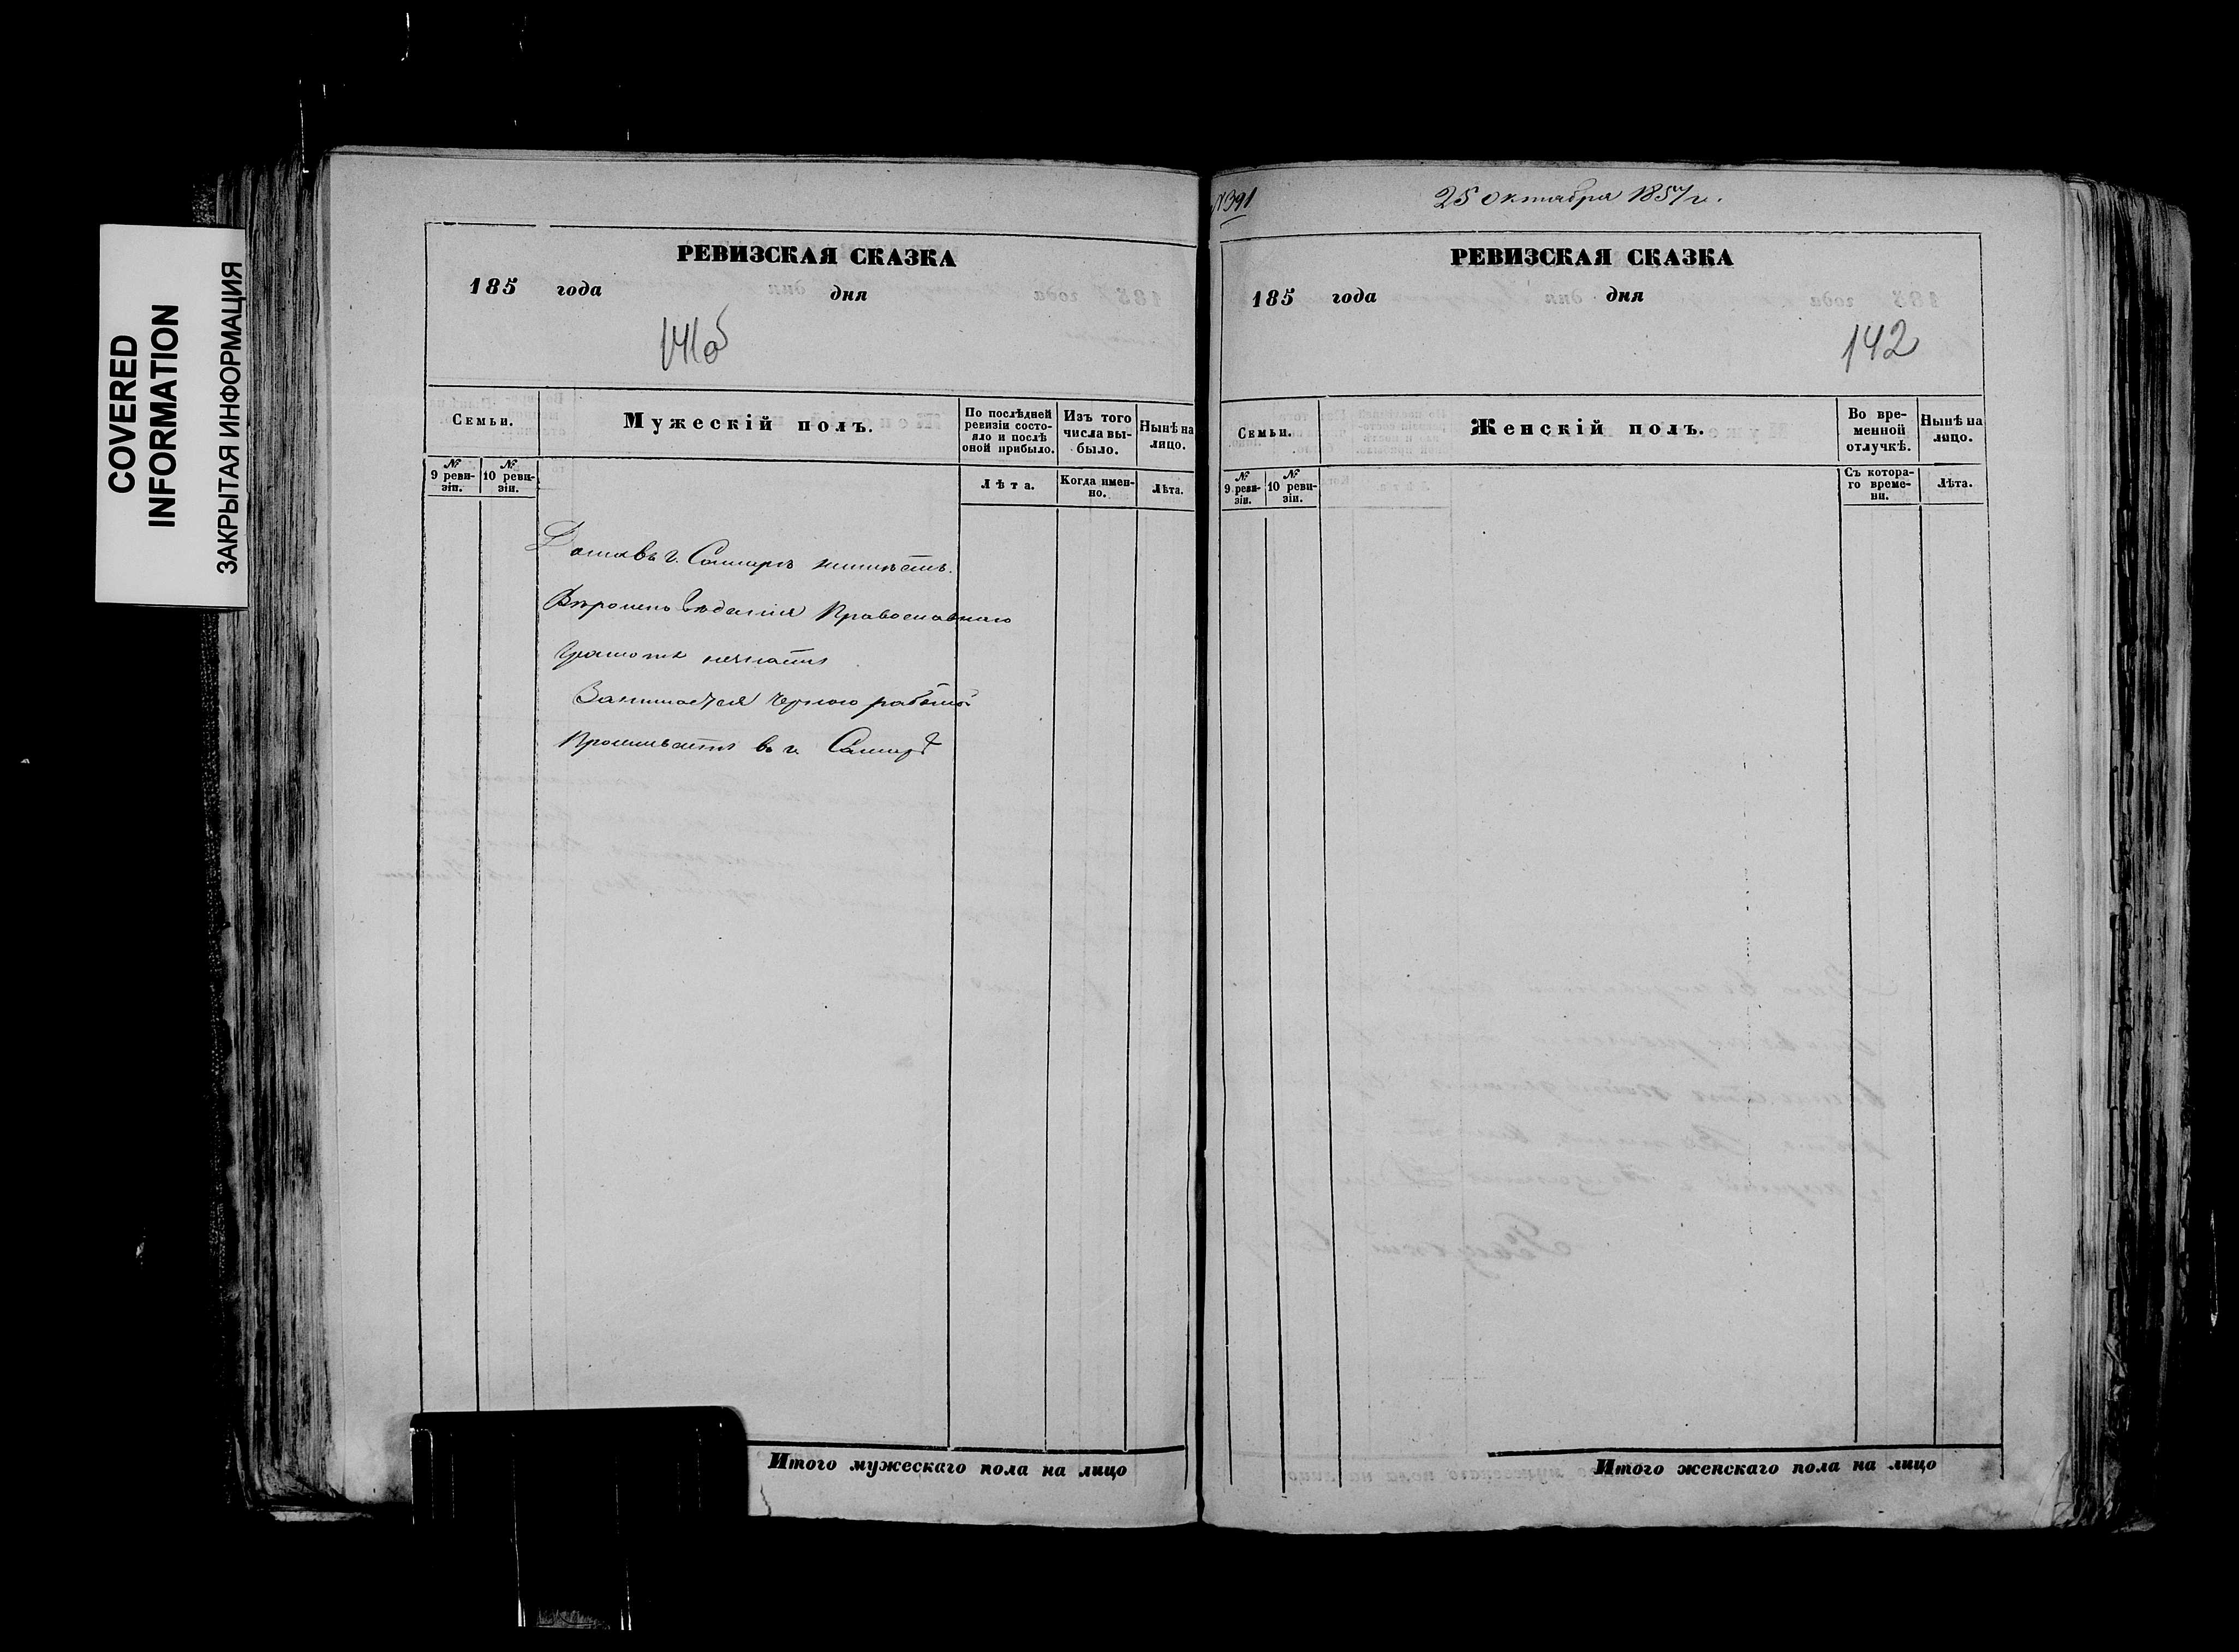 COVERED
INFORMATION
ЗАКРЫТАЯ ИНФОРМАЦИЯ
РЕВИЗСКАЯ СКАЗКА
185 года дня
141об
Семьи.
Мужескій полъ.
По послѣдней ревизіи состояло и послѣ оной прибыло.
Изъ того числа выбыло.
Нынѣ на лицо.
№ 9 ревизіи.
№ 10 ревизіи.
Лѣта.
Когда именно.
Лѣта.
Дома въ г. Самарѣ неимѣетъ.
Вѣроисповѣданія Православнаго
Грамотѣ незнаетъ
Занимается черною работою
Проживаетъ въ г. Самарѣ
Итого мужескаго пола на лицо
№391
25 октября 1857 г.
РЕВИЗСКАЯ СКАЗКА
185 года дня
142
Семьи.
Женскій полъ.
Во временной отлучкѣ.
Нынѣ на лицо.
№ 9 ревизіи.
№ 10 ревизіи.
Съ котораго времени.
Лѣта.
Итого женскаго пола на лицо